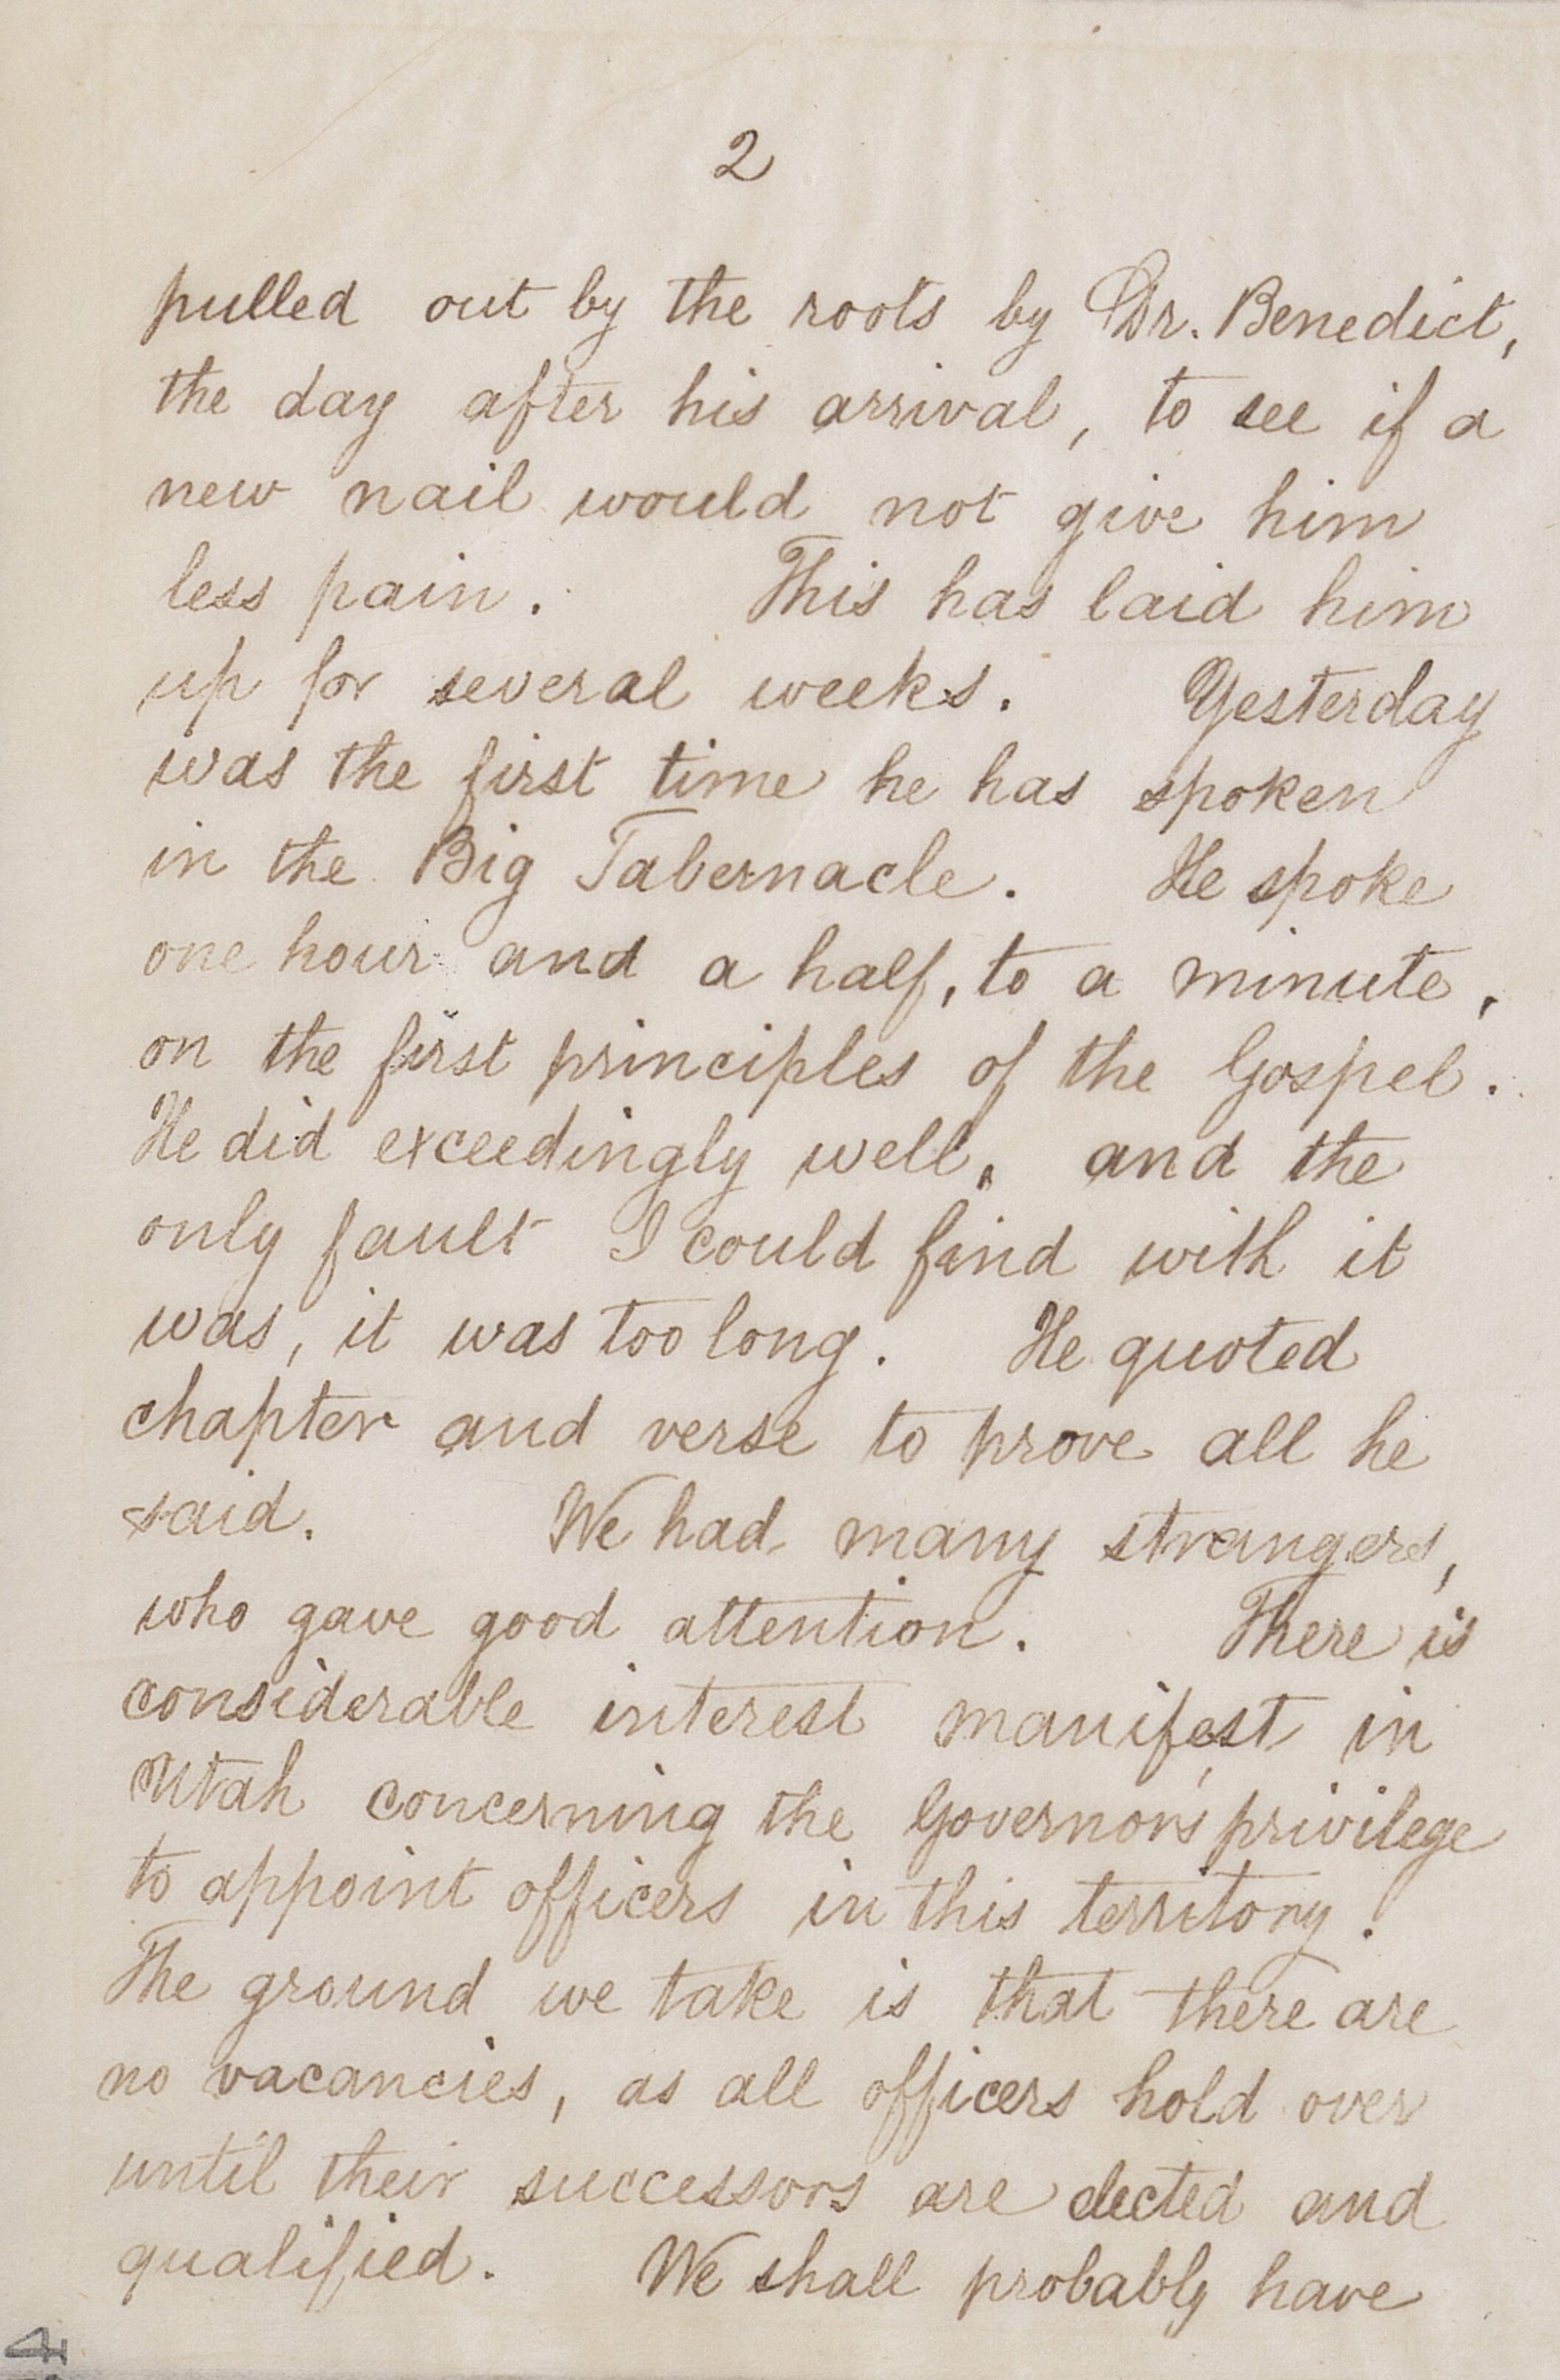 2
pulled out by the roots by Dr. Benedict,
the day after his arrival, to see if a
new nail would not give him
less pain. This has laid him
up for several weeks. Yesterday
was the first time he has spoken
in the Big Tabernacle. He spoke
one hour and a half, to a minute,
on the first principles of the Gospel.
He did exceedingly well, and the
only fault I could find with it
was, it was too long. He quoted
chapter and verse to prove all he
said. We had many strangers,
who gave good attention. There is
considerable interest manifest in
Utah concerning the Governor's privilege
to appoint officers in this territory.
The ground we take is that there are
no vacancies, as all officers hold over
until their successors are elected and
qualified. We shall probably have
4